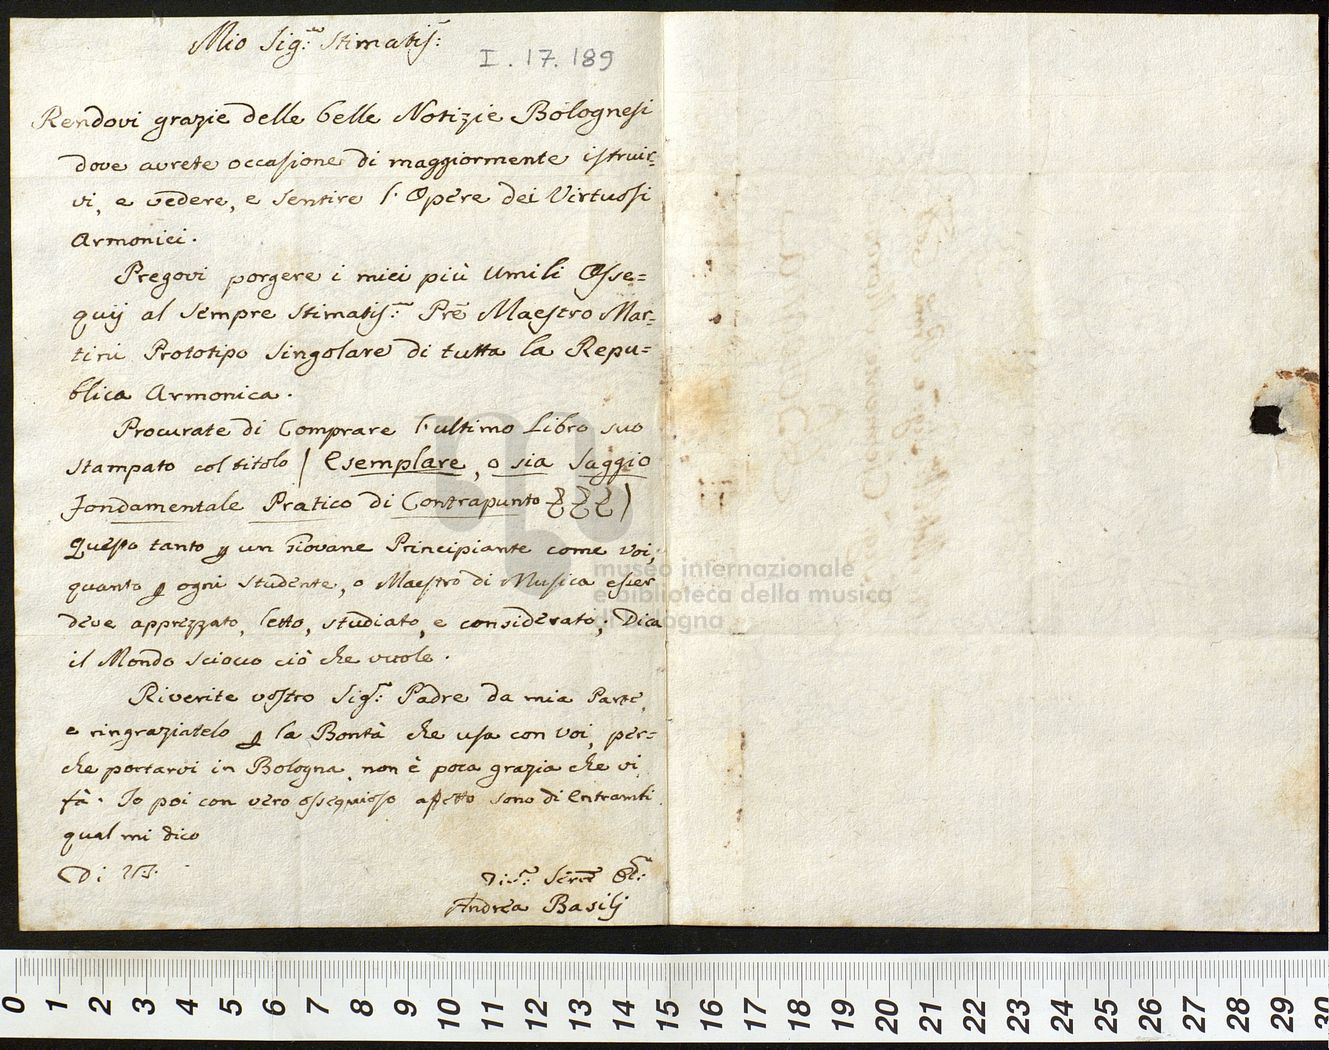 Mio Sig.re Stimatis.:
I. 17. 189
Rendovi grazie delle belle Notizie Bolognesi
dove avrete occasione di maggiormente istruir-
vi, e vedere, e sentire l'Opere dei Virtuosi
Armonici.
Pregovi porgere i miei più Umili Osse=
quij al sempre stimatis.: Prē Maestro Mar-
tini Prototipo singolare di tutta la Repu=
blica Armonica.
Procurate di Comprare l'ultimo Libro suo
stampato col titolo / Esemplare, o sia Saggio
Fondamentale Pratico di Contrapunto
Questo tanto p un Giovane Principiante come Voi,
quanto p ogni studente, o Maestro di Musica esser
deve apprezzato, letto, studiato, e considerato; Dica
il Mondo sciocco ciò che vuole.
Riverite vostro Sig.r: Padre da mia Parte,
e ringraziatelo p la Bontà che usa con voi, per=
che portarvi in Bologna, non è poca grazia che vi
fà. Io poi con vero ossequioso affetto sono di entrambi
qual mi dico
Di V.S.
Andrea Basilj
museo internazionale
e biblioteca della musica
di bologna
0 1 2 3 4 5 6 7 8 9 10 11 12 13 14 15 16 17 18 19 20 21 22 23 24 25 26 27 28 29 30